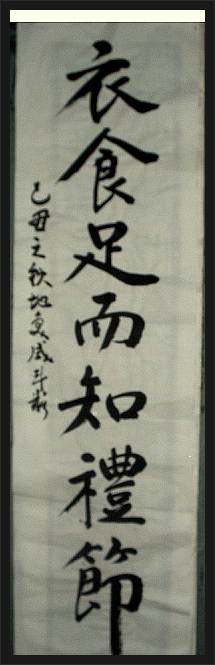 衣食足而知禮節
己丑之秋